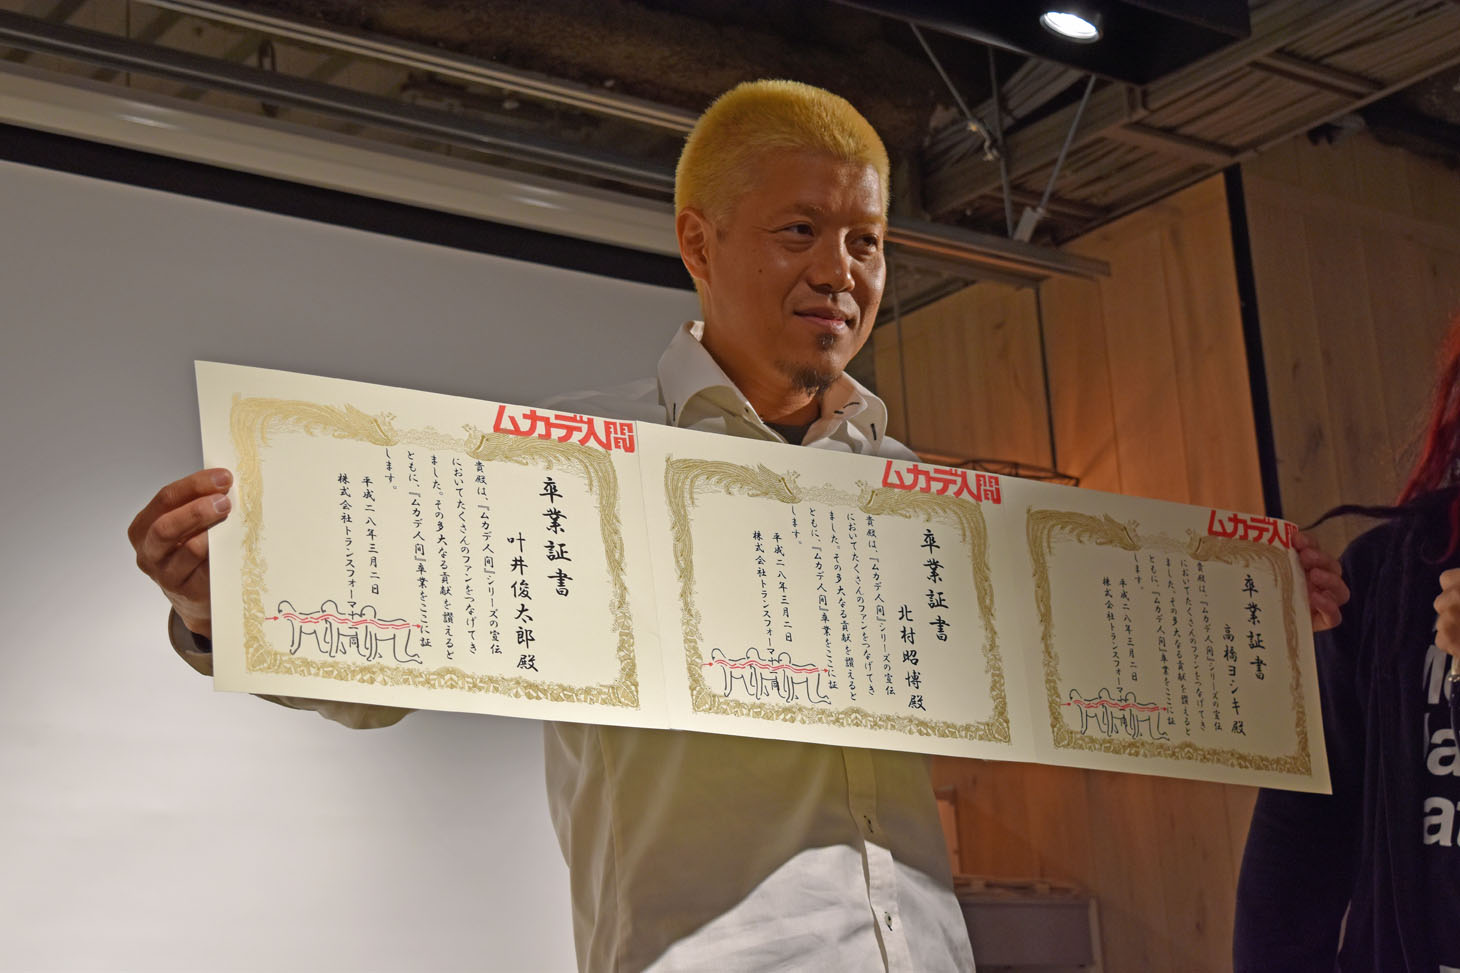 ムカデ人間
卒業証書
叶井俊太郎殿
貴殿は、『ムカデ人间』シリーズの宣伝
においてたくさんのファンをつなげてき
ました。その多大なる貢献を讃えると
ともに、『ムカデ人间』卒業をここに証
します。
平成二八年三月二日
株式会社トランスフォーマー一同
ムカデ人間
卒業証書
北村昭博殿
貴殿は、『ムカデ人间』シリーズの宣伝
においてたくさんのファンをつなげてき
ました。その多大なる貢献を讃えると
ともに、『ムカデ人间』卒業をここに証
します。
平成二八年三月二日
株式会社トランスフォーマー一同
ムカデ人間
卒業証書
高橋ヨシキ殿
貴殿は、『ムカデ人间』シリーズの宣伝
においてたくさんのファンをつなげてき
ました。その多大なる貢献を讃えると
ともに、『ムカデ人间』卒業をここに証
します。
平成二八年三月二日
株式会社トランスフォーマー一同